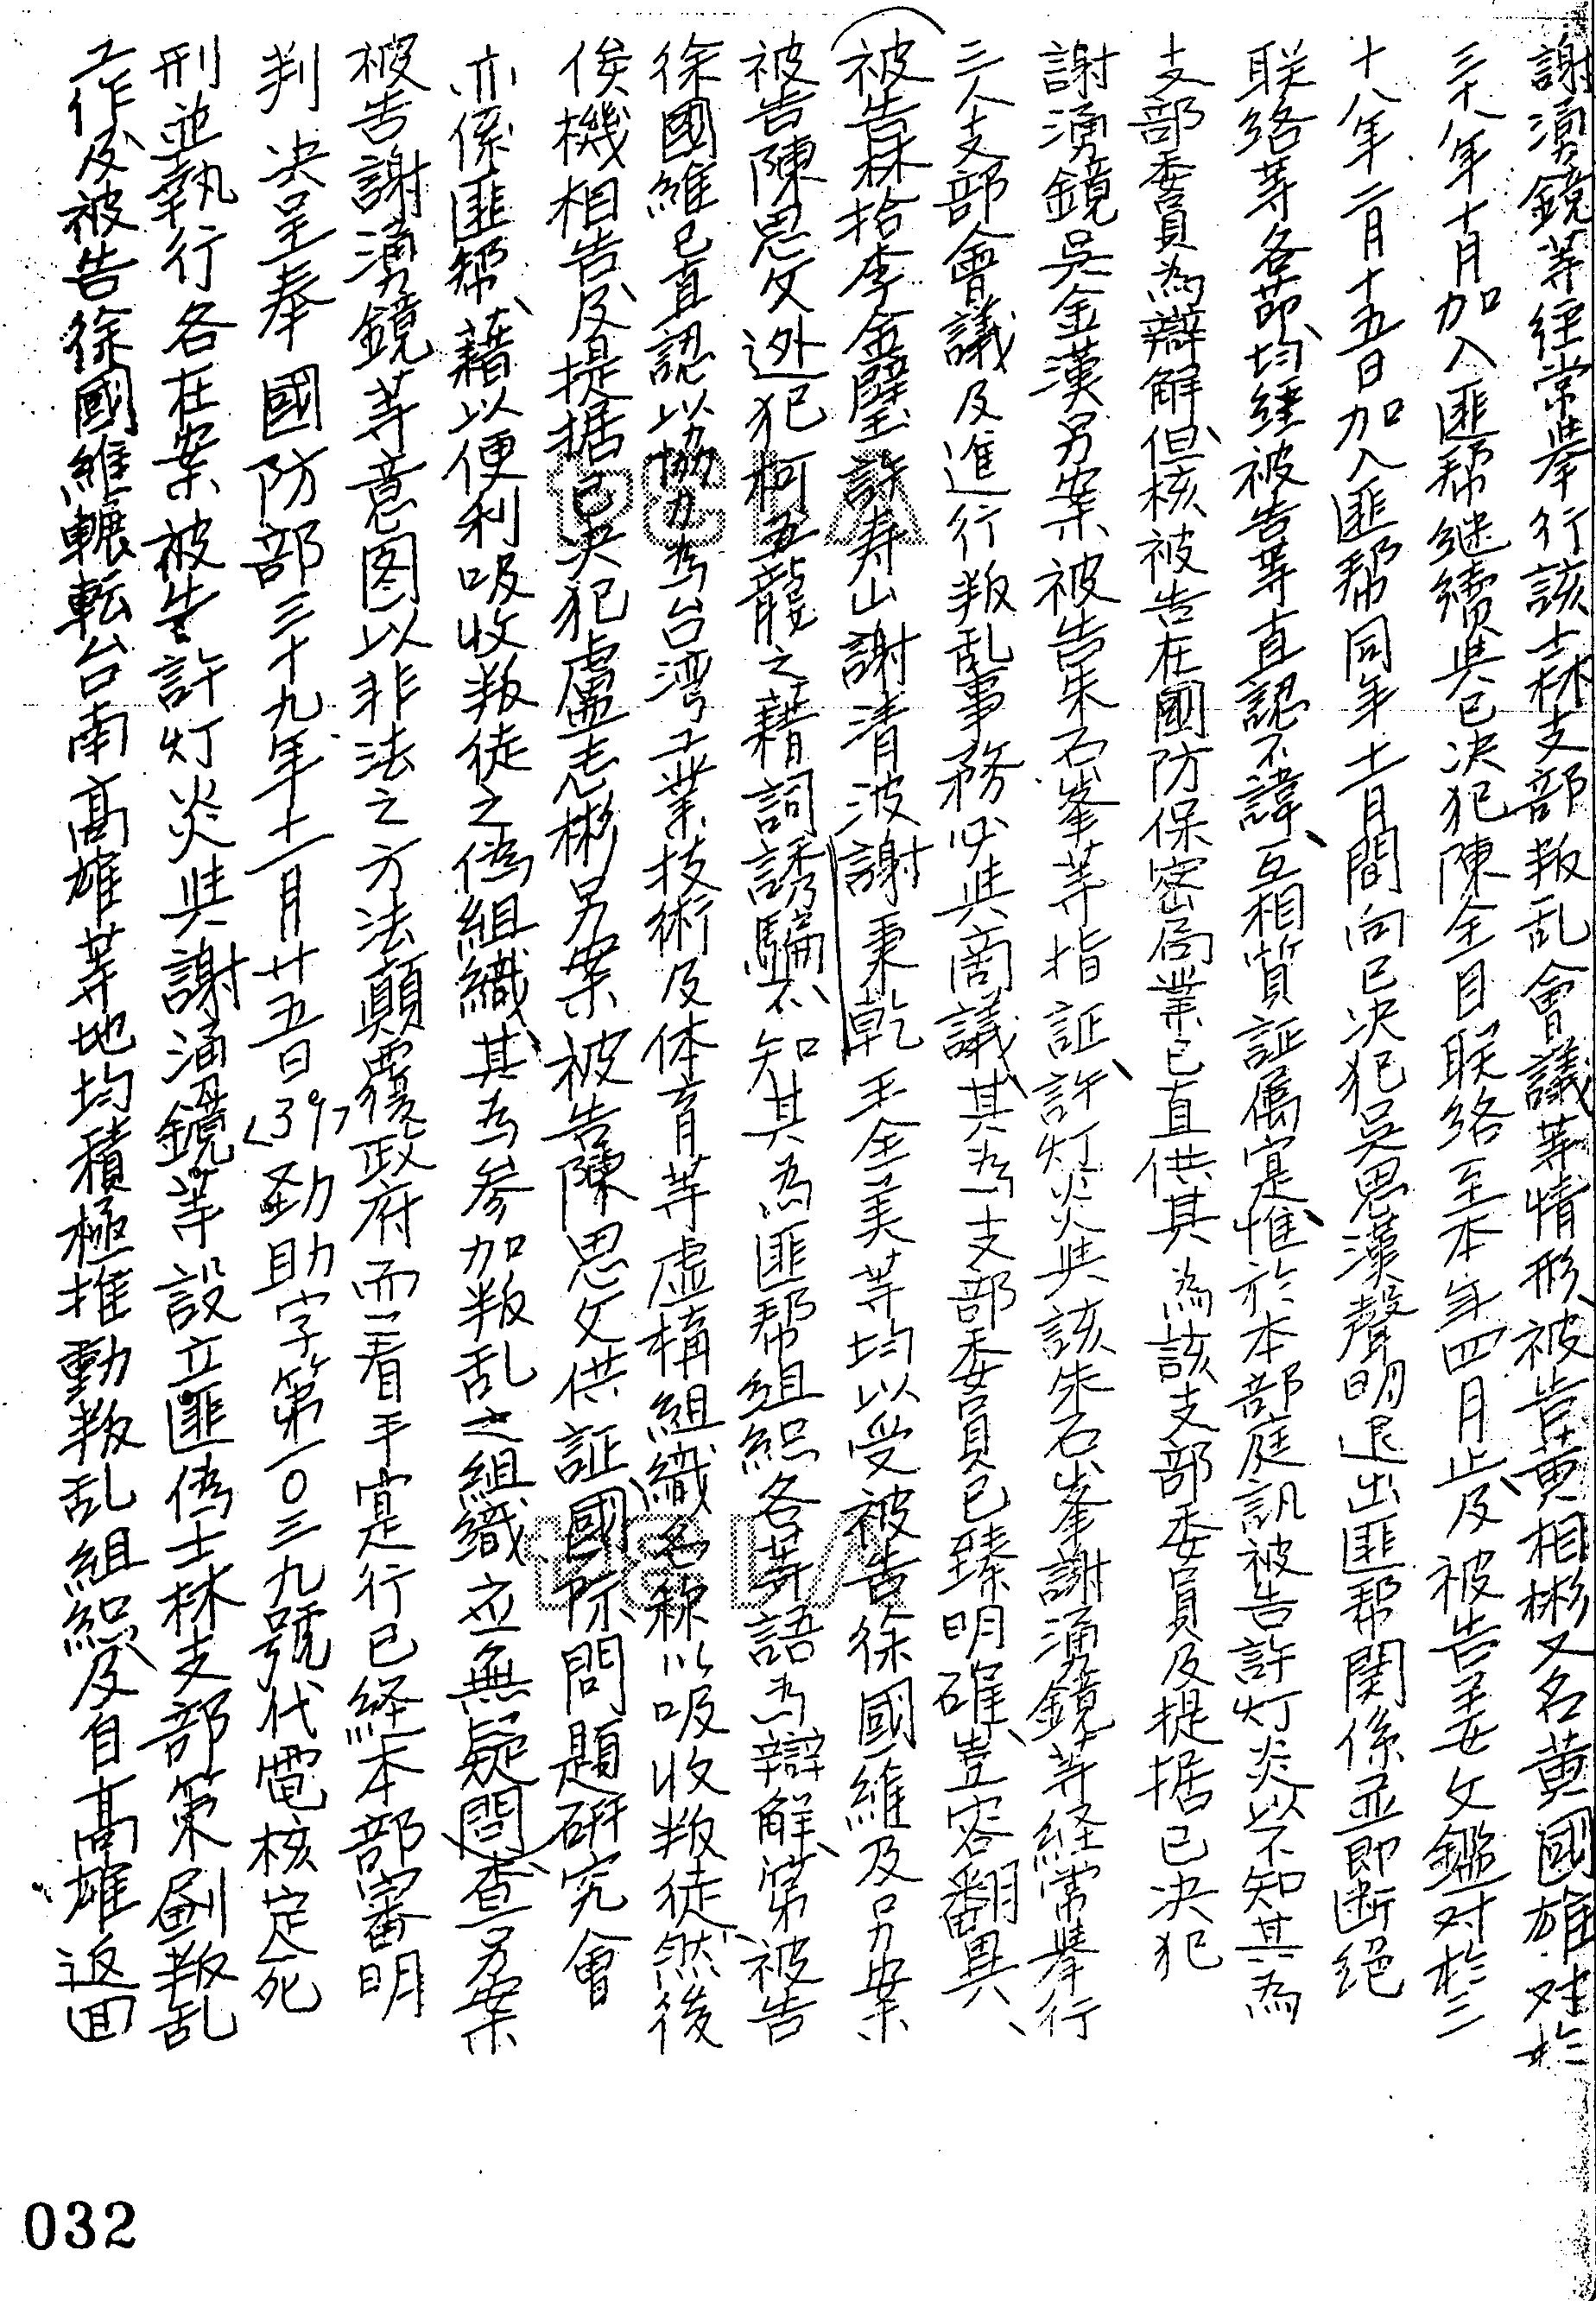 謝湧鏡等経常举行該士林支部叛乱會議等情形、被告黄相彬又名黄國雄对於
三十八年十月加入匪帮继續與已决犯陳全目联络至本年四月止、及被告姜文鑑对於三
十八年二月十五日加入匪帮同年十一月間向已决犯吴思漢聲明退出匪帮関係並即断绝
联络等各節、均経被告等直認不諱、互相質証属寔、惟於本部庭訊被告許灯炎以不知其為
支部委員為辯解、但核被告在國防保密局業已直供其為該支部委員及提据已决犯
謝湧鏡吴金漢另案被告朱石峯等指証、許灯炎與該朱石峯謝湧鏡等経常举行
三人支部會議及進行叛乱事務必與商議、其為支部委員已臻明確、豈容翻異、
被告林拾李金璧許寿山謝清波謝秉乾王全美等均以受被告徐國維及另案
被告陳思文迯犯柯五龍之藉詞誘騙不知其為匪帮組織各等語為辯解、第被告
徐國維已直認以協力為台湾工業技術及体育等虚構組織名稱以吸收叛徒、然後
俟機相告、及提据已决犯盧志彬另案被告陳思文供証國际問題研究會
亦係匪帮、藉以便利吸收叛徒之偽組織、其為参加叛乱之組織並無疑問、查另案
被告謝湧鏡等意图以非法之方法顛覆政府而着手寔行已経本部審明
判决呈奉 國防部三十九年十一月廿五日<39>勁助字第一〇三九號代電核定死
刑並執行各在案被告許灯炎與謝湧鏡等設立匪偽士林支部策劃叛乱
工作及被告徐國維輾転台南高雄等地均積極推動叛乱組織及自高雄返回
032